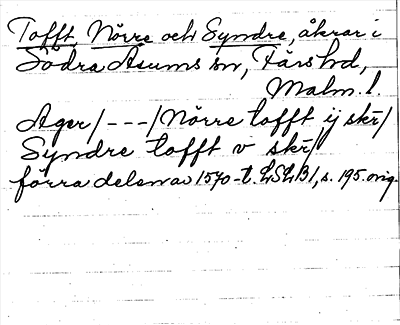 Tofft, Nörre och Syndre, åkrar i
Södra Åsums sn, Färs hd,
Malm. l.
Ager/---/Nörre tofft ij skr/
Syndre tofft v skr/
förra delen av 1570-t. LSLB1, s. 195. orig.